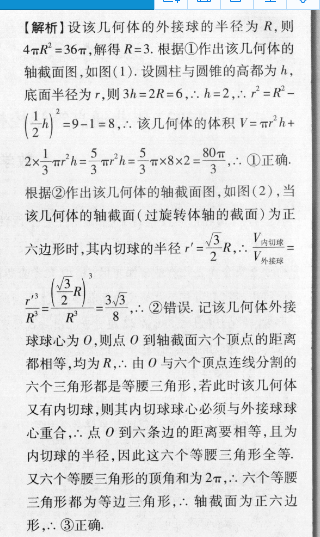 【解析】设该几何体的外接球的半径为 R,则
4πR²=36π,解得 R=3. 根据①作出该几何体的
轴截面图,如图(1). 设圆柱与圆锥的高都为 h,
底面半径为 r,则 3h=2R=6,∴ h=2,∴ r²=R²-
(1/2 h)²=9-1=8,∴ 该几何体的体积 V=πr²h+
2×1/3 πr²h=5/3 πr²h=5/3 π×8×2=80π/3,∴ ①正确.
根据②作出该几何体的轴截面图,如图(2),当
该几何体的轴截面(过旋转体轴的截面)为正
六边形时,其内切球的半径 r'=√3/2 R,∴ V内切球/V外接球=
r'³/R³=(√3/2 R)³/R³=3√3/8,∴ ②错误. 记该几何体外接
球球心为 O,则点 O 到轴截面六个顶点的距离
都相等,均为 R,∴ 由 O 与六个顶点连线分割的
六个三角形都是等腰三角形,若此时该几何体
又有内切球,则其内切球球心必须与外接球球
心重合,∴ 点 O 到六条边的距离要相等,且为
内切球的半径,因此这六个等腰三角形全等.
又六个等腰三角形的顶角和为 2π,∴ 六个等腰
三角形都为等边三角形,∴ 轴截面为正六边
形,∴ ③正确.